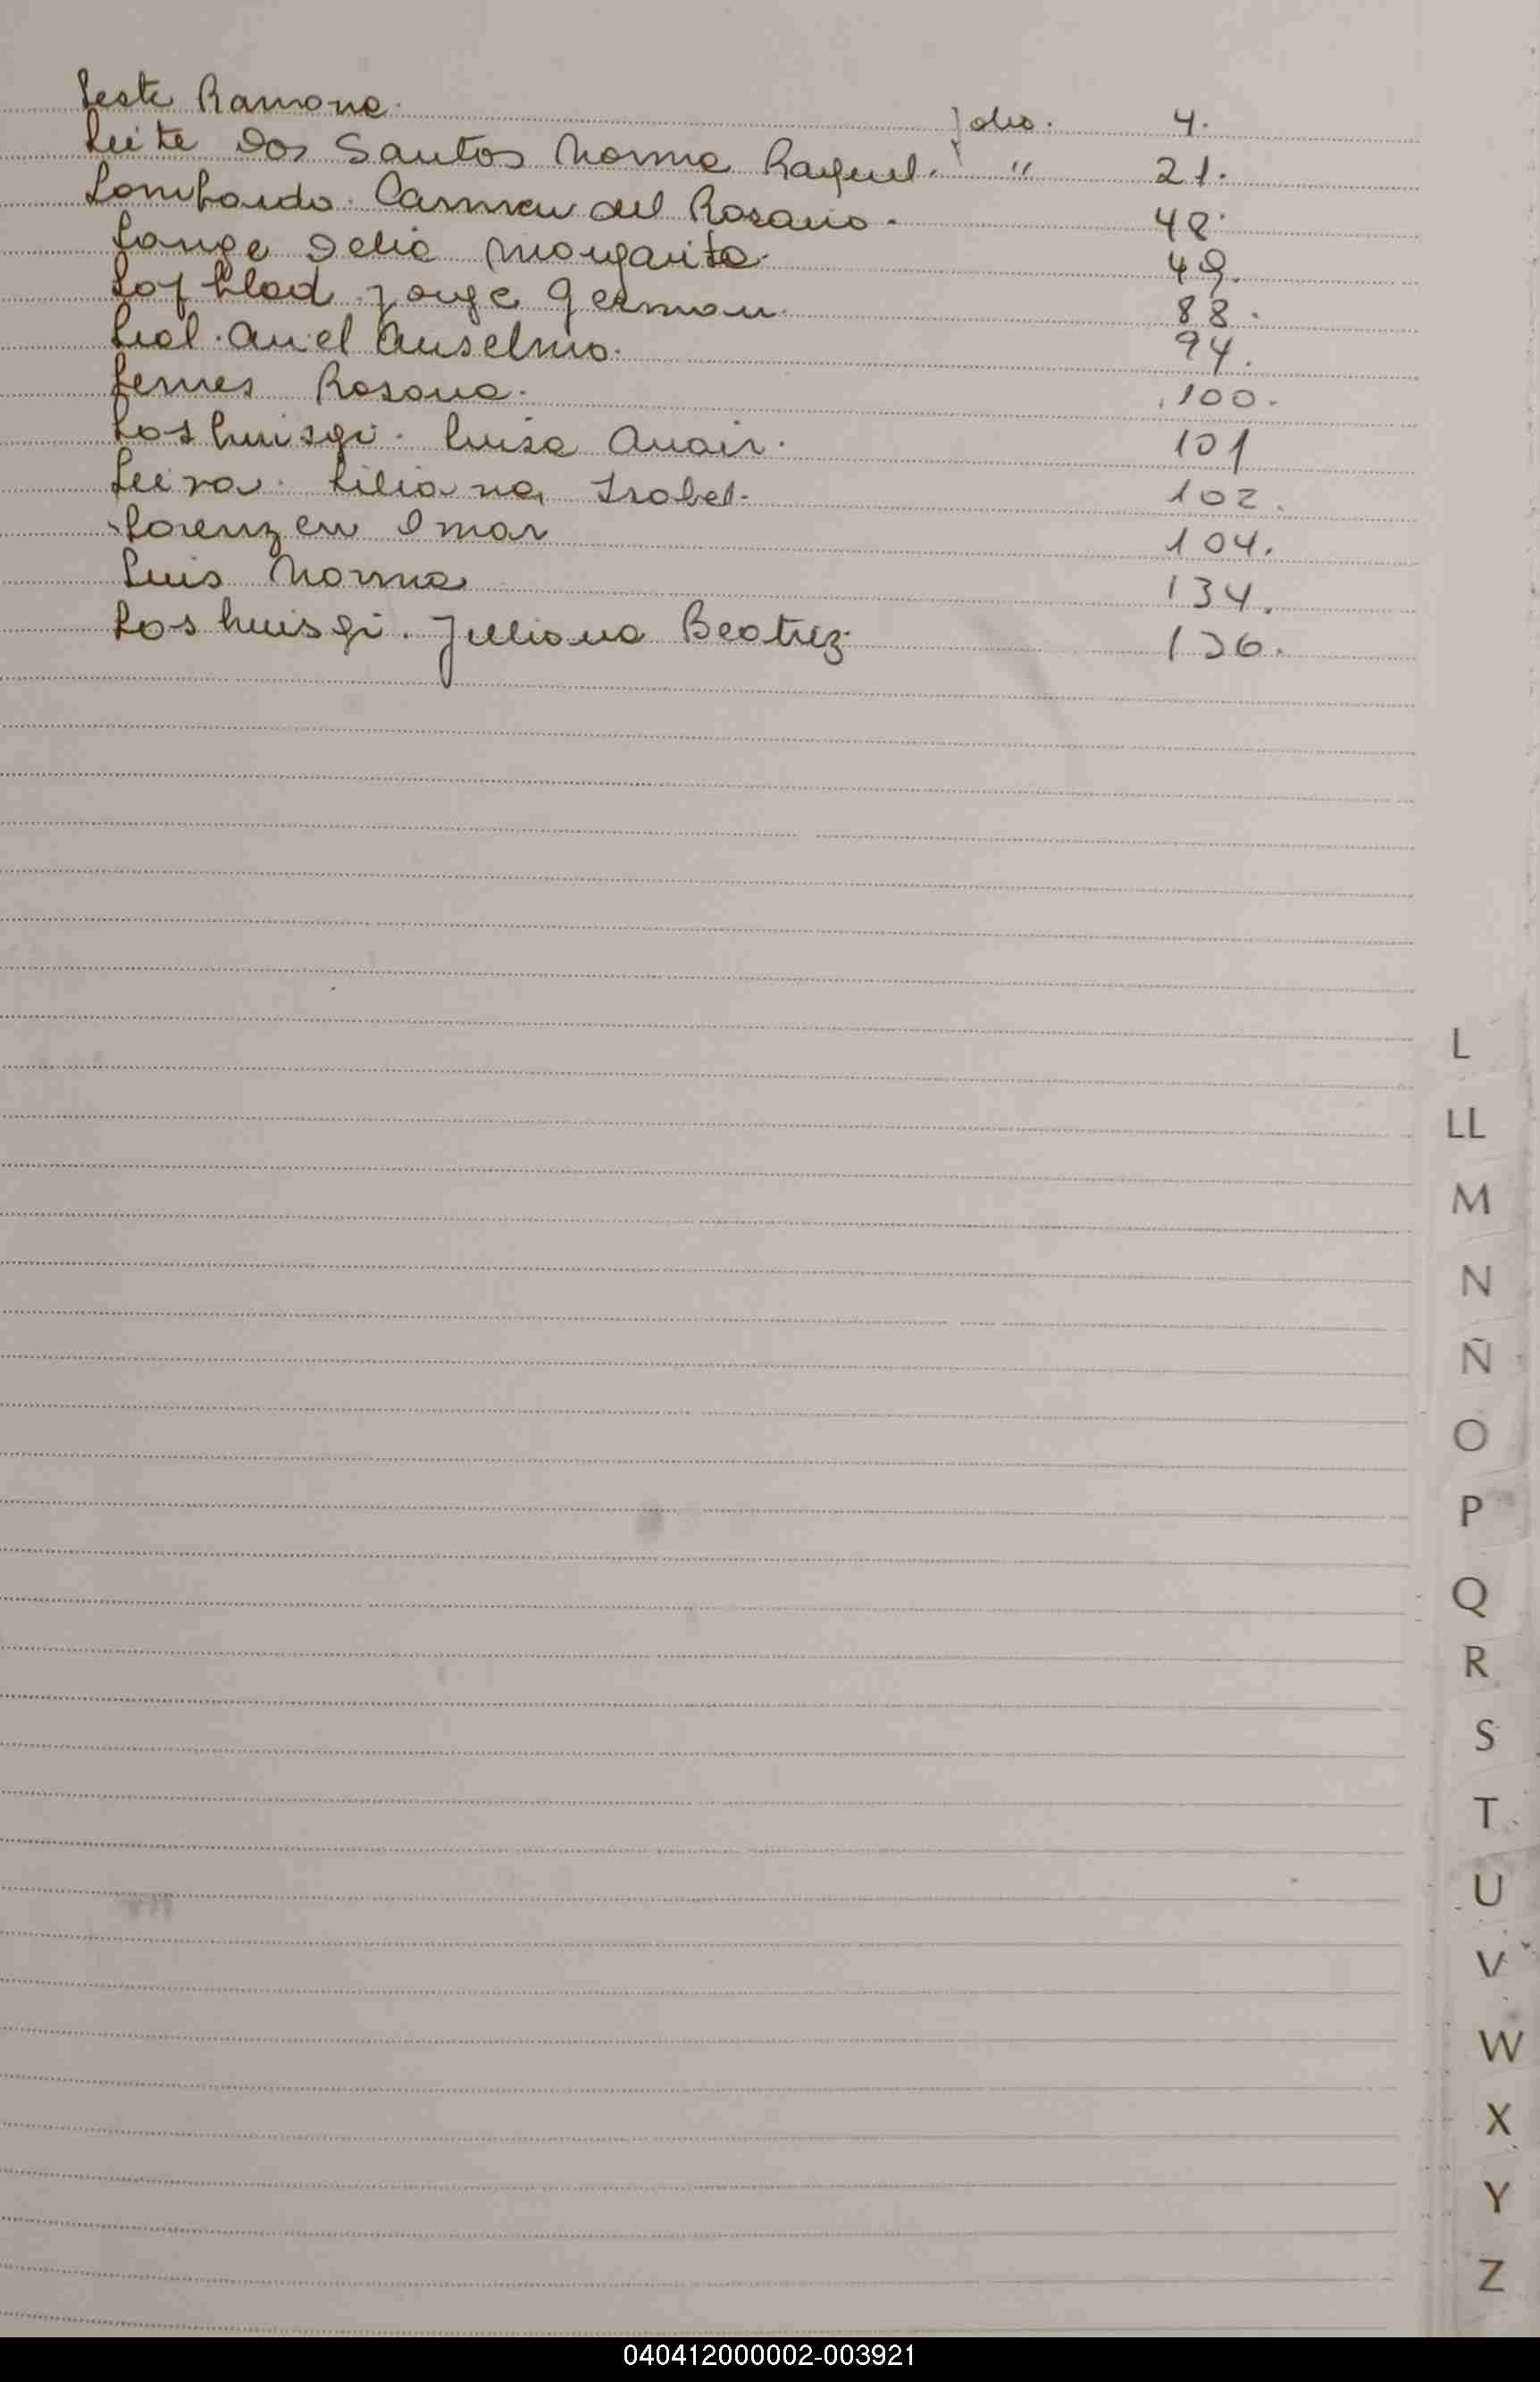 Leste Ramona. folio. 4.
Leite Dos Santos Norma Raquel. " 21.
Lombardo. Carmen del Rosario. 48.
Lange Delia Margarita. 49.
Lofblad Jorge German. 88.
Lial. Ariel Anselmo. 94.
Lemes Rosana. 100.
Luisa Anair. 101
Leiva. Liliana Isabel. 102.
Lorenzen Omar 104.
Luis Norma 134.
Juliana Beatriz. 136.
L
LL
M
N
Ñ
O
P
Q
R
S
T
U
V
W
X
Y
Z
040412000002-003921